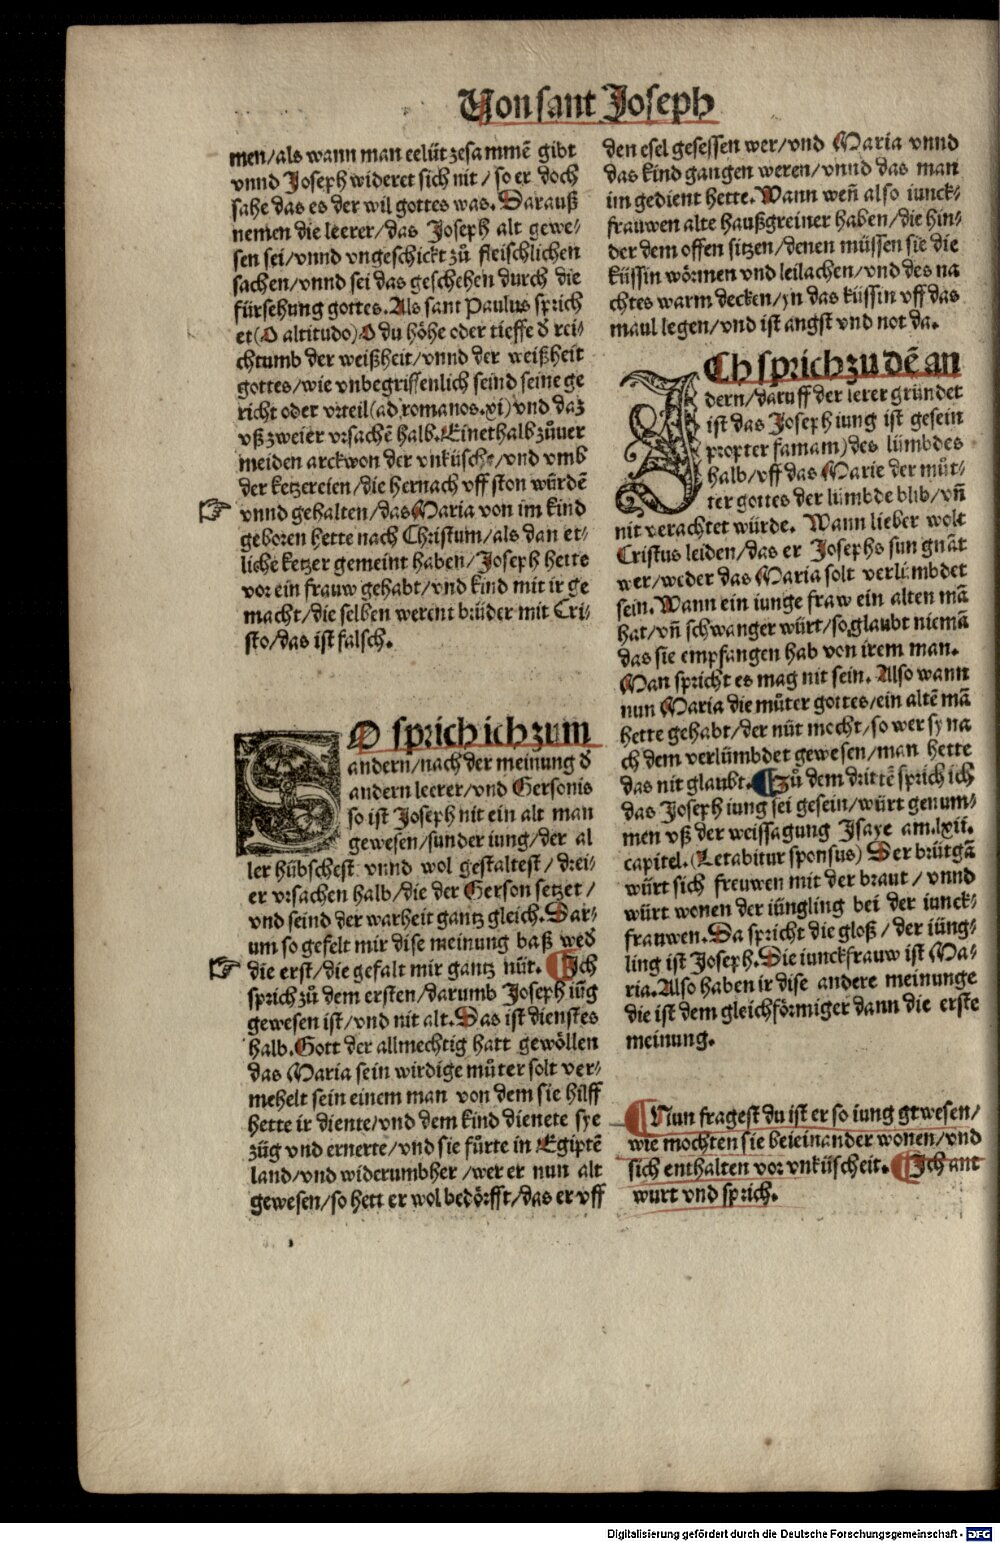 Von sant Joseph
men/als wann man eelüt zesammē gibt
vnnd Joseph wideret sich nit/so er doch
sahe das es der wil gottes was. Darauß
nemen die leerer/das Joseph alt gewe-
sen sei/vnnd vngeschickt zů fleischlichen
sachen/vnnd sei das geschehen durch die
fürsehung gottes. Als sant Paulus sprich
et(O altitudo)O du höhe oder tieffe d̄ rei-
chtumb der weißheit/vnnd der weißheit
gottes/wie vnbegriffenlich seind seine ge
richt oder vrteil(ad romanos.xi)vnd daz
vß zweier vrsachē halb. Einethalb zůuer
meiden arckwon der vnküsche/vnd vmb
der ketzereien/die hernach vff ston würdē
vnnd gehalten/das Maria von im kind
geboren hette nach Christum/als dan et-
lichē ketzer gemeint haben/Joseph hette
vor ein frauw gehabt/vnd kind mit ir ge
macht/die selben werent brüder mit Cri-
sto/das ist falsch.
SO sprich ich zum
andern/nach der meinung d̄
andern leerer/vnd Gersonis
so ist Joseph nit ein alt man
gewesen/sunder iung/der al
ler hübschest vnnd wol gestaltest/drei-
er vrsachen halb/die der Gerson setzet/
vnd seind der warheit gantz gleich. Dar-
um so gefelt mir dise meinung baß wed̄
die erst/die gefalt mir gantz nüt. ¶Ich
sprich zů dem ersten/darumb Joseph iūg
gewesen ist/vnd nit alt. Das ist dienstes
halb. Gott der allmechtig hatt gewöllen
das Maria sein wirdige můter solt ver-
mehelt sein einem man von dem sie hilff
hette ir diente/vnd dem kind dienete sye
züg vnd ernerte/vnd sie fürte in Egiptē
land/vnd widerumbher/wer er nun alt
gewesen/so hett er wol bedörfft/das er vff
den esel gesessen wer/vnd Maria vnnd
das kind gangen weren/vnnd das man
im gedient hette. Wann weñ also iunck-
frauwen alte haußgreiner haben/die hin-
der dem offen sitzen/denen müssen sie die
küssin wörmen vnd leilachen/vnd des na
chtes warm decken/yn das küssin vff das
maul legen/vnd ist angst vnd not da.
ICh sprich zu dē an
dern/daruff der lerer gründet
ist das Joseph iung ist gesein
propter famam)des lümbdes
halb/vff das Marie der můt-
ter gottes der lümbde blib/vñ
nit verachtet würde. Wann lieber wolt
Cristus leiden/das er Josephs sun gnāt
wer/weder das Maria solt verlümbdet
sein. Wann ein iunge fraw ein alten mā
hat/vñ schwanger würt/so glaubt niemā
das sie empfangen hab von irem man.
Man spricht es mag nit sein. Also wann
nun Maria die můter gottes/ein altē mā
hette gehabt/der nüt mocht/so wer sy na
ch dem verlümbdet gewesen/man hette
das nit glaubt. ¶Zů dem drittē sprich ich
das Joseph iung sei gesein/würt genum-
men vß der weissagung Isaye am.lxii.
capitel.(Letabitur sponsus)Der brütgā
würt sich freuwen mit der braut/vnnd
würt wonen der iüngling bei der iunck-
frauwen. Da spricht die gloß/der iüng-
ling ist Joseph. Die iunckfrauw ist Ma-
ria. Also haben ir dise andere meinunge
die ist dem gleichförmiger dann die erste
meinung.
¶Nun fragest du ist er so iung gewesen/
wie mochten sie beieinander wonen/vnd
sich enthalten vor vnküscheit. ¶Ich ant
wurt vnd sprich.
Digitalisierung gefördert durch die Deutsche Forschungsgemeinschaft - DFG